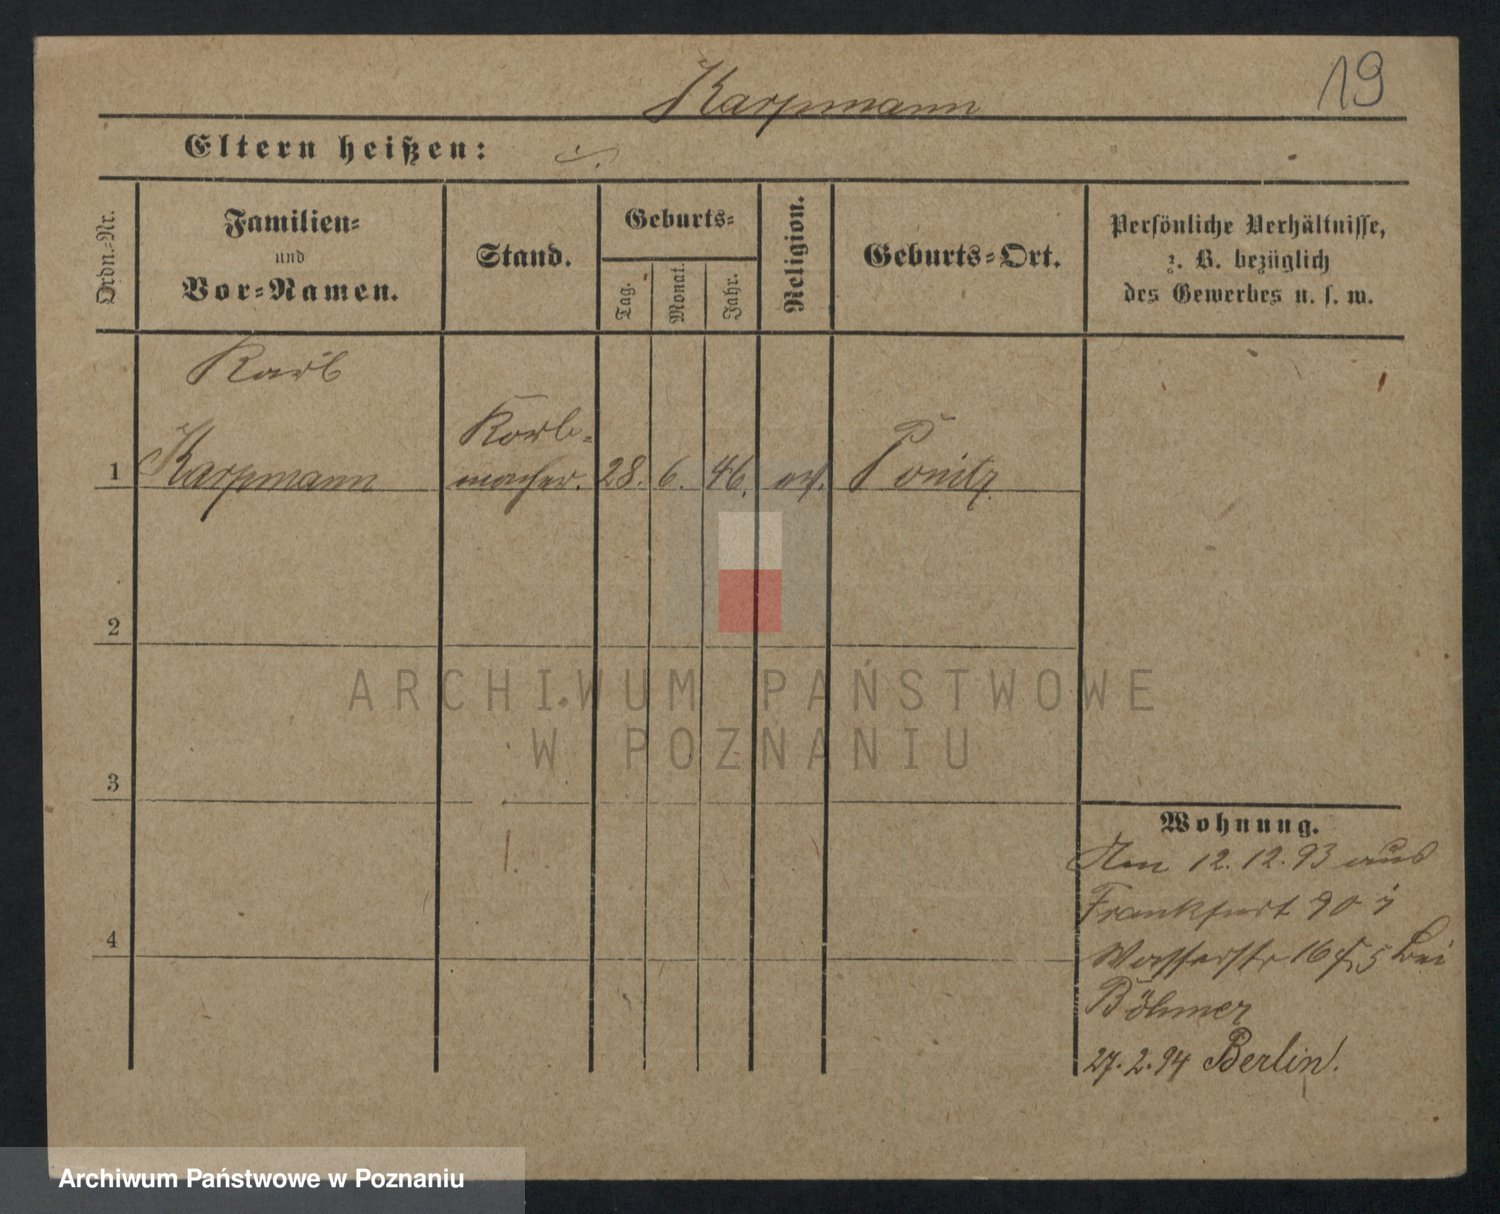 19
Karpmann
Eltern heißen: ./.
Ordn.-Nr.
Familien-
und
Vor-Namen.
Stand.
Geburts-
Tag.
Monat.
Jahr.
Religion.
Geburts-Ort.
Persönliche Verhältnisse,
z. B. bezüglich
des Gewerbes u. s. w.
Karl
Korb-
1 Karpmann macher. 28. 6. 46. Ponitz
2
3
4
ARCHIWUM PAŃSTWOWE
W POZNANIU
Wohnung.
12.12.93 aus
Frankfurt
Wasserstr 16 bei
Böhmer
27.2.94 Berlin!
Archiwum Państwowe w Poznaniu